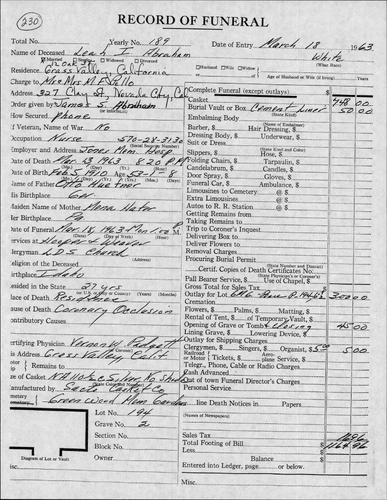 230
RECORD OF FUNERAL
Total No. Yearly No. 189 Date of Entry March 18 1963
Name of Deceased Leah F. Abraham White
Married Single Widowed Divorced Husband Wife Widow
Residence Grass Valley, California
Charge to Mrs.
Address 327 Clay St. Nevada City, Cal
Order given by James S. Abraham
How Secured Phone
If Veteran, Name of War No
Occupation Nurse 570-28-3130
Employer and Address Jones Mem. Hosp.
Date of Death Mar 13 1963 8:20 P.M.
Date of Birth Feb 5, 1910 Age 53-1-8
Name of Father Otto Huettner
His Birthplace Ger
Maiden Name of Mother
Her Birthplace
Date of Funeral Mar. 18, 1963
Services at Hooper & Weaver
Clergyman L.D.S. Church
Religion of the Deceased
Birthplace Idaho
Resided in the State 27 yrs
Place of Death Residence
Cause of Death Coronary Occlusion
Contributory Causes
Certifying Physician Vernon W. Padgett
His Address Grass Valley, Calif
Remains to
of Casket
Manufactured by
Cemetery Greenwood Mem Gardens
Lot No. 194
Grave No. 2
Section No.
Block No.
Owner
Diagram of Lot or Vault
Complete Funeral (except outlays)
Casket 748 00
Burial Vault or Box Cement Liner 50 00
Embalming Body
Barber, Hair Dressing
Dressing Body, Underwear
Suit or Dress
Slippers, Hose
Folding Chairs, Tarpaulin
Candelabrum, Candles
Door Spray, Gloves
Funeral Car, Ambulance
Limousines to Cemetery
Extra Limousines
Autos to R. R. Station
Getting Remains from
Taking Remains to
Trip to Coroner's Inquest
Delivering Box to
Deliver Flowers to
Removal Charges
Procuring Burial Permit
Certif. Copies of Death Certificates No.
Pall Bearer Service, Use of Chapel
Gross Total for Sales Tax
Outlay for Lot 300 00
Cremation
Flowers, Palms, Matting
Rental of Tent, of Temporary Vault
Opening of Grave or Tomb Closing 45 00
Lining Grave, Lowering Device
Outlay for Shipping Charges
Clergymen, Singers, Organist 5.00 5 00
Railroad or Motor Tickets, Aeroplane Service
Telegr., Phone, Cable or Radio Charges
Cash Advanced
Out of town Funeral Director's Charges
Personal Service
line Death Notices in Papers
(Names of Newspapers)
Sales Tax 16 96
Total Footing of Bill 1164 96
Less
Balance
Entered into Ledger, page or below.
Misc.
Misc.